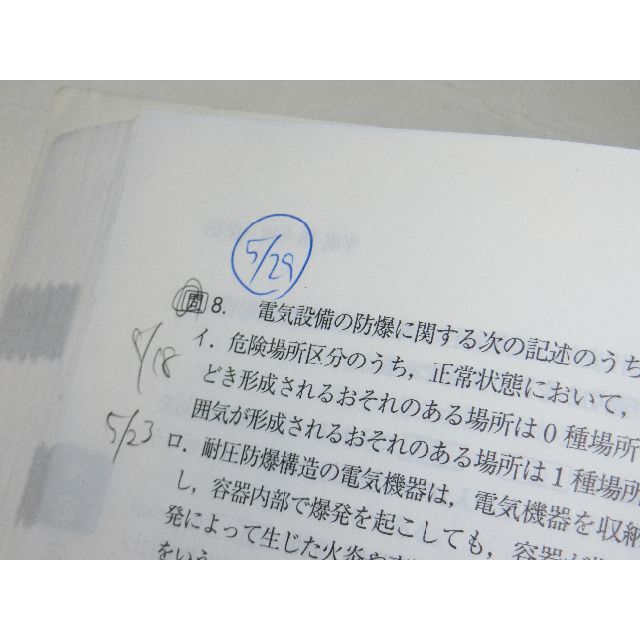 5/29
問8. 電気設備の防爆に関する次の記述のうち
イ. 危険場所区分のうち，正常状態において，
どき形成されるおそれのある場所は0種場所
囲気が形成されるおそれのある場所は1種場所
5/23
ロ. 耐圧防爆構造の電気機器は，電気機器を収納
し，容器内部で爆発を起こしても，容器が
発によって生じた火炎や
をいう